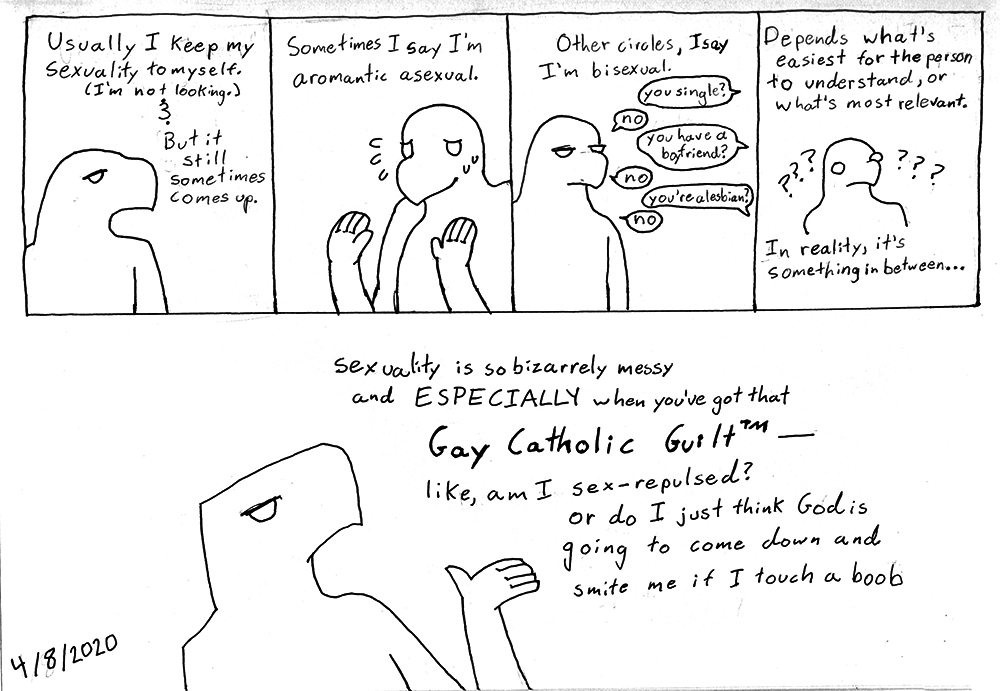 Usually I keep my
sexuality to myself.
(I'm not looking.)
But it
still
sometimes
comes up.
Sometimes I say I'm
aromantic asexual.
Other circles, I say
I'm bisexual.
you single?
no
you have a
boyfriend?
no
you're a lesbian?
no
Depends what's
easiest for the person
to understand, or
what's most relevant.
? ? ? ?
? ? ?
In reality, it's
something in between...
sexuality is so bizarrely messy
and ESPECIALLY when you've got that
Gay Catholic Guilt™—
like, am I sex-repulsed?
or do I just think God is
going to come down and
smite me if I touch a boob
4/8/2020